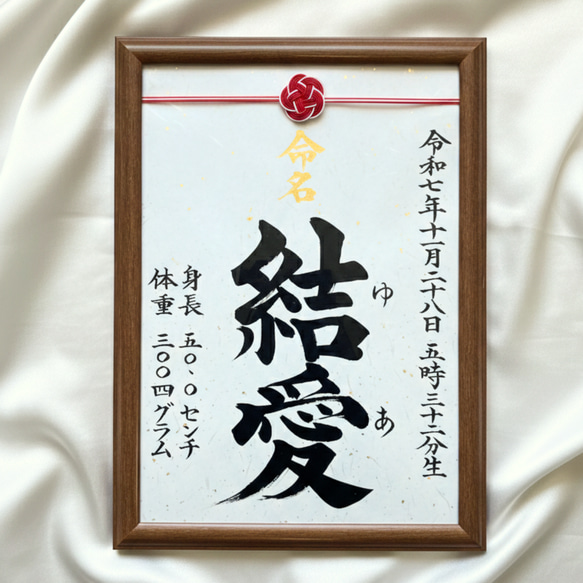 令和七年十一月二十八日 五時三十二分生
命名
結愛
ゆ あ
身長 五〇、〇センチ
体重 三〇〇四グラム